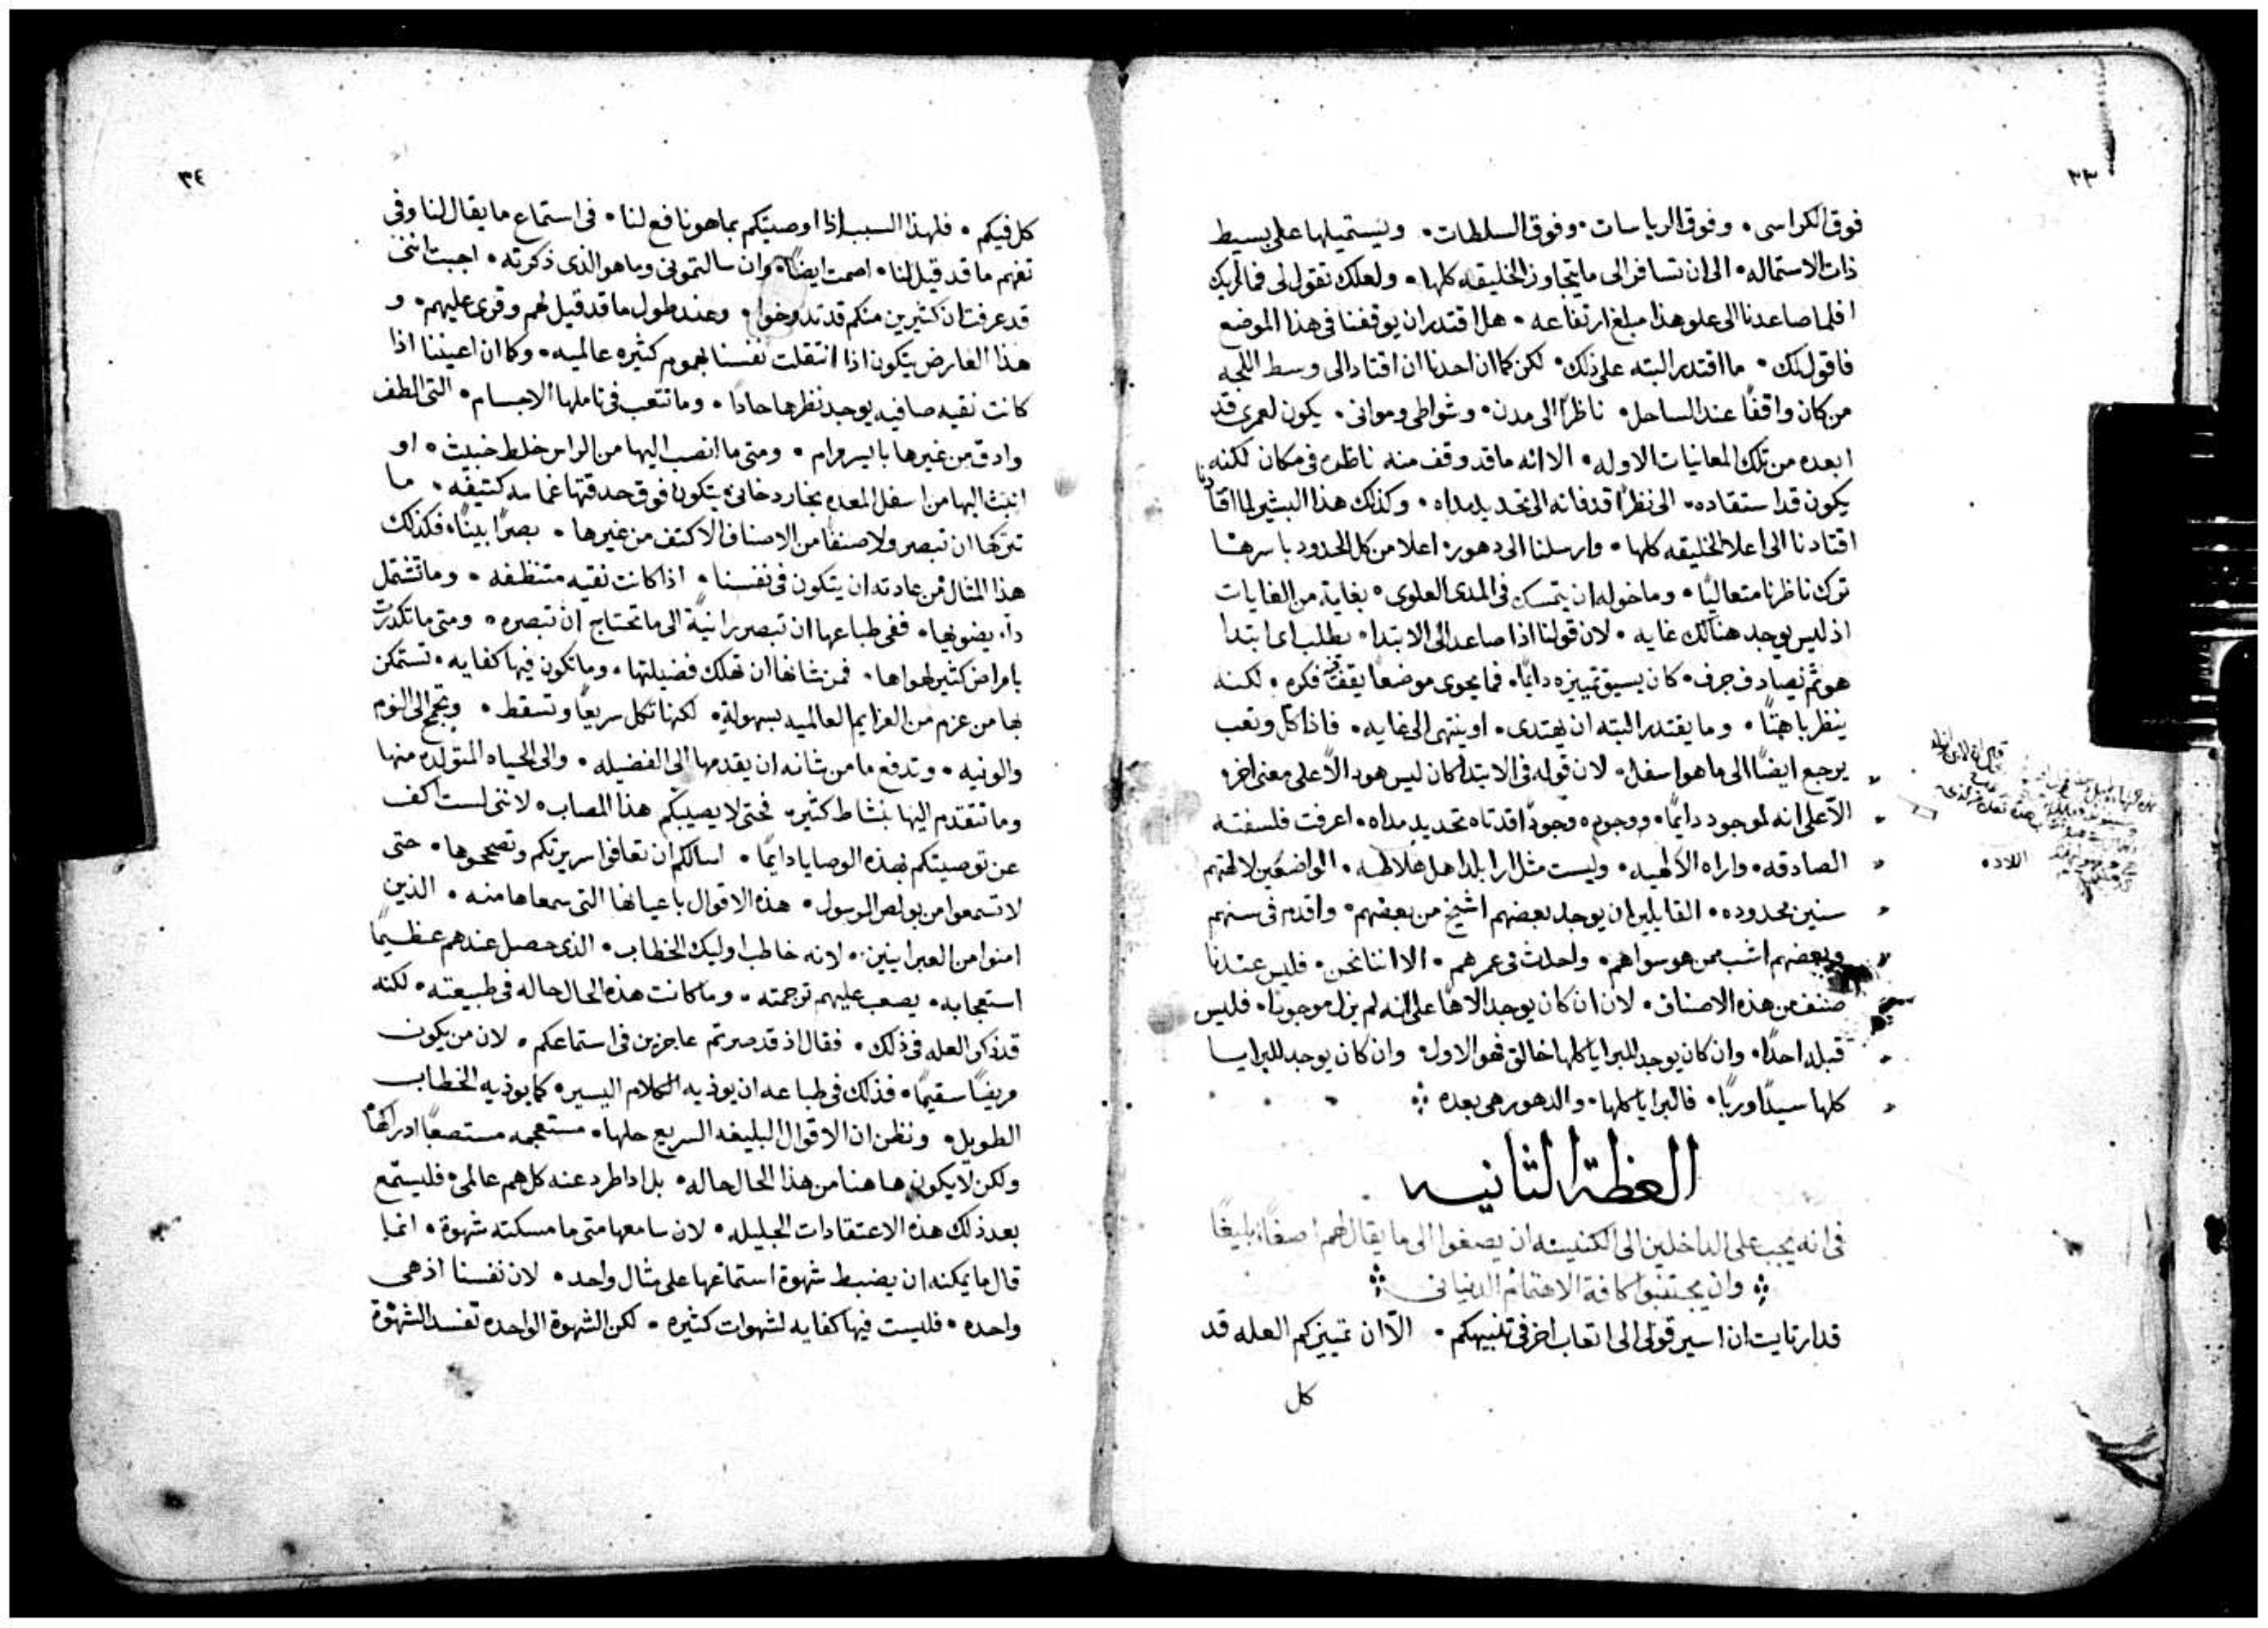 ٣٣
فوق الكراسى٠ وفوق الرياسات٠ وفوق السلطات٠ ويستميلها على بسيط
ذات الاستماله٠ الى ان تسافر الى ما يتجاوز الخليقه كلها٠ ولعلك تقول لى فما لربك
افلما صاعدنا الى علو هذا مبلغ ارتفاعه٠ هل اقتدر ان يوقفنا فى هذا الموضع
فاقول لك٠ ما اقتدر البته على ذلك٠ لكن كما ان احدنا ان اقتاد الى وسط اللجه
من كان واقفًا عند الساحل٠ ناظرًا الى مدن٠ وشواطى وموانى٠ يكون لعمرى قد
ابعده من تلك المعانيات الاوله٠ الا انه ما قد وقف منه ناظره فى مكان لكنه
يكون قد استقاده٠ الى نظرٍ قد فاته الى تحديد مداه٠ وكذلك هذا البشير لما اقتادنا
اقتادنا الى اعلا الخليقه كلها٠ وارسلنا الى دهور٠ اعلا من كل الحدود باسرها
ترك ناظرنا متعاليًا٠ وما خوله ان يتمسك فى المدى العلوى٠ بغاية من الغايات
اذ ليس يوجد هنالك غايه٠ لان قولنا اذا صاعد الى الابتدا٠ يطلب اى ابتدا
هو ثم نصادف حرف٠ كان يسبق تمييزه دايمًا٠ فما يحوى موضعًا يقف فيه فكره٠ لكنه
ينظر باهتًا٠ وما يقتدر البته ان يهتدى٠ او ينتهى الى غايه٠ فاذا كل وتعب
يرجع ايضًا الى ما هو اسفل٠ لان قوله فى الابتدا كان ليس هو الا على معنى اخر٠
الا على انه لموجود دايمًا٠ ووجوده وجودًا قد تاه تحديد مداه٠ اعرفت فلسفته
الصادقه٠ واراه الالهيه٠ وليست مثل ارا بلد اهل هلاطيه٠ الواضعين لالهتهم
سنين محدوده٠ القايلين ان يوجد بعضهم اشيخ من بعضهم٠ واقدم فى سنهم
وبعضهم اشب ممن هو سواهم٠ واحدث فى عمرهم٠ الا اننا نحن٠ فليس عندنا
صنف من هذه الاصناف٠ لان ان كان يوجد الاهًا على انه لم يزل موجودًا٠ فليس
قبله احدًا٠ وان كان يوجد للبرايا كلها خالق فهو الاول٠ وان كان يوجد للبرايا
كلها سيدًا وربًا٠ فالبرايا كلها٠ والدهور هى بعده
العظة الثانيه
فى انه يجب على الداخلين الى الكنيسه ان يصغوا الى ما يقال لهم اصغاءً بليغًا
وان يجتنبوا كافة الاهتمام الدنيانى
قد ارتايت ان اسير قولى الى اتعاب اخر فى تنبيهكم٠ الا ان تمييزكم العله قد
كل
٣٤
كل فيكم٠ فلهذا السبب اذا اوصيتكم بما هو نافع لنا٠ فى استماع ما يقال لنا وفى
تفهم ما قد قيل لنا٠ اصمت ايضًا٠ وان سالتمونى وما هو الذى ذكرته٠ اجبت اننى
قد عرفت ان كثيرين منكم قد تدوخوا٠ وعند طول ما قد قيل لهم وقرى عليهم٠ و
هذا العارض يتكون اذا انتقلت نفسنا بهموم كثيره عالميه٠ وكما ان اعيننا اذا
كانت نقيه صافيه يوجد نظرها حادًا٠ وما تتعب فى تاملها الاجسام٠ التى الطف
وادق من غيرها بايسر مرام٠ ومتى ما انصب اليها من الراس خلط خبيث٠ او
انبث اليها من اسفل المعده بخار دخانى يتكون فوق حدقتها غمامه كثيفه٠ ما
تتركها ان تبصر ولا صنفًا من الاصناف الاكثف من غيرها٠ بصرًا بينًا٠ فكذلك
هذا المثال من عادته ان يتكون فى نفسنا٠ اذا كانت نقيه متنظفه٠ وما تشتمل
داء يضويها٠ ففى طباعها ان تبصر برانيةً الى ما تحتاج ان تبصره٠ ومتى ما تكدرت
بامراض كثير لهواها٠ فمن شانها ان تهلك فضيلتها٠ وما تكون فيها كفايه٠ تستمكن
بها من عزم من العزايم العالميه بسهولة٠ لكنها تكل سريعًا وتسقط٠ وتجمح الى النوم
والونيه٠ وتدفع ما من شانه ان يقدمها الى الفضيله٠ والى الحياه المتولده منها
وما تتقدم اليها بنشاط كثير٠ فحتى لا يصيبكم هذا المصاب٠ لاننى لست اكف
عن توصيتكم بهذه الوصايا دايمًا٠ اسالكم ان تعافوا سريرتكم وتصححوها٠ حتى
لا تسمعوا من بولص الرسول٠ هذه الاقوال باعيانها التى سمعاها منه٠ الذين
امنوا من العبرانيين٠ لانه خاطب اوليك الخطاب٠ الذى حصل عندهم عظيمًا
استعجابه٠ يصعب عليهم ترجمته٠ وما كانت هذه الحال حاله فى طبيعته٠ لكنه
قد ذكر العله فى ذلك٠ فقال اذ قد صرتم عاجزين فى استماعكم٠ لان من يكون
مريضًا سقيمًا٠ فذلك فى طباعه ان يوذيه الكلام اليسير٠ كما يوذيه الخطاب
الطويل٠ ونظن ان الاقوال البليغه السريع حلها٠ مستعجمه مستصعبًا ادراكها
ولكن لا يكون هاهنا من هذا الحال حاله٠ بل اذا طرد عنه كل هم عالمى٠ فليستمع
بعد ذلك هذه الاعتقادات الجليله٠ لان سامعها متى ما مسكته شهوة٠ انما
قال ما يمكنه ان يضبط شهوة استماعها على مثال واحد٠ لان نفسنا اذ هى
واحده٠ فليست فيها كفايه لشهوات كثيره٠ لكن الشهوة الواحده تفسد الشهوة